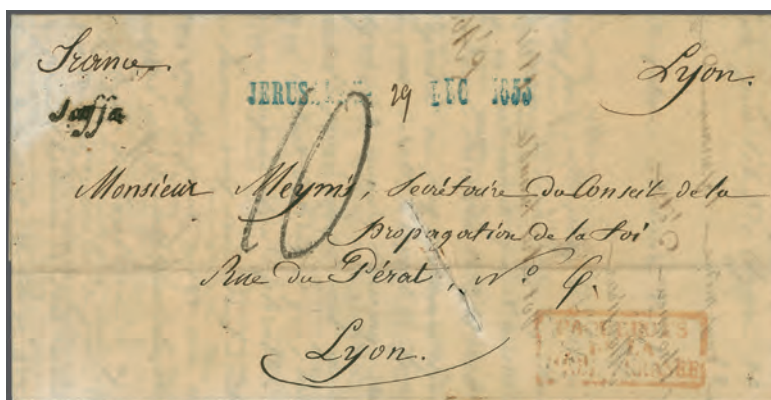 France
Lyon.
JERUSALEM 29 DEC 1853
Jaffa
10
Monsieur Meynis, Secrétaire du Conseil de la
Propagation de la Foi
Rue du Pérat, N°
Lyon.
PAQUEBOTS
DE LA
MÉDITERRANÉE